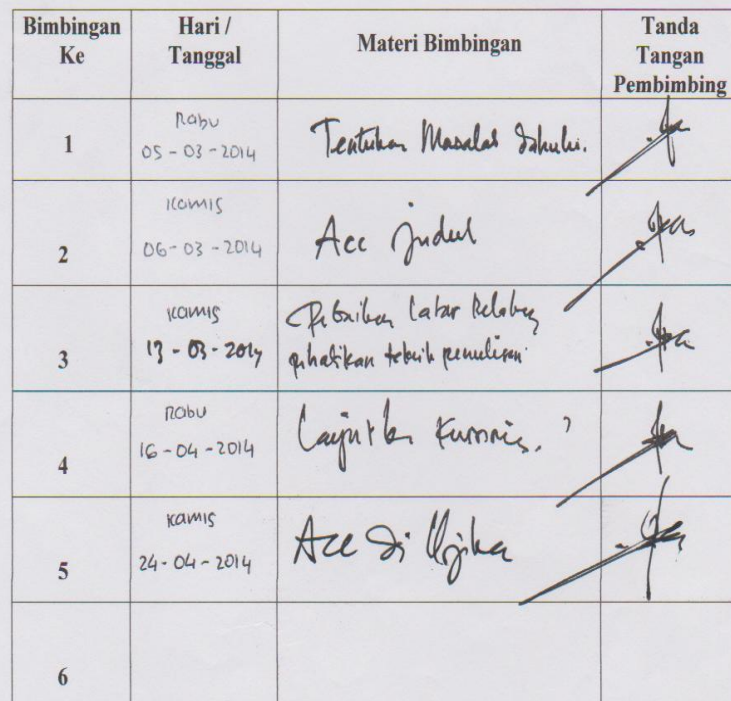 Bimbingan Ke
Hari / Tanggal
Materi Bimbingan
Tanda Tangan Pembimbing
1
Rabu
05-03-2014
Tentukan Masalah dahulu.
2
Kamis
06-03-2014
Acc judul
3
Kamis
13-03-2014
Perbaikan Latar Belakang
perhatikan teknik penulisan
4
Rabu
16-04-2014
5
Kamis
24-04-2014
Acc di Ujikan
6